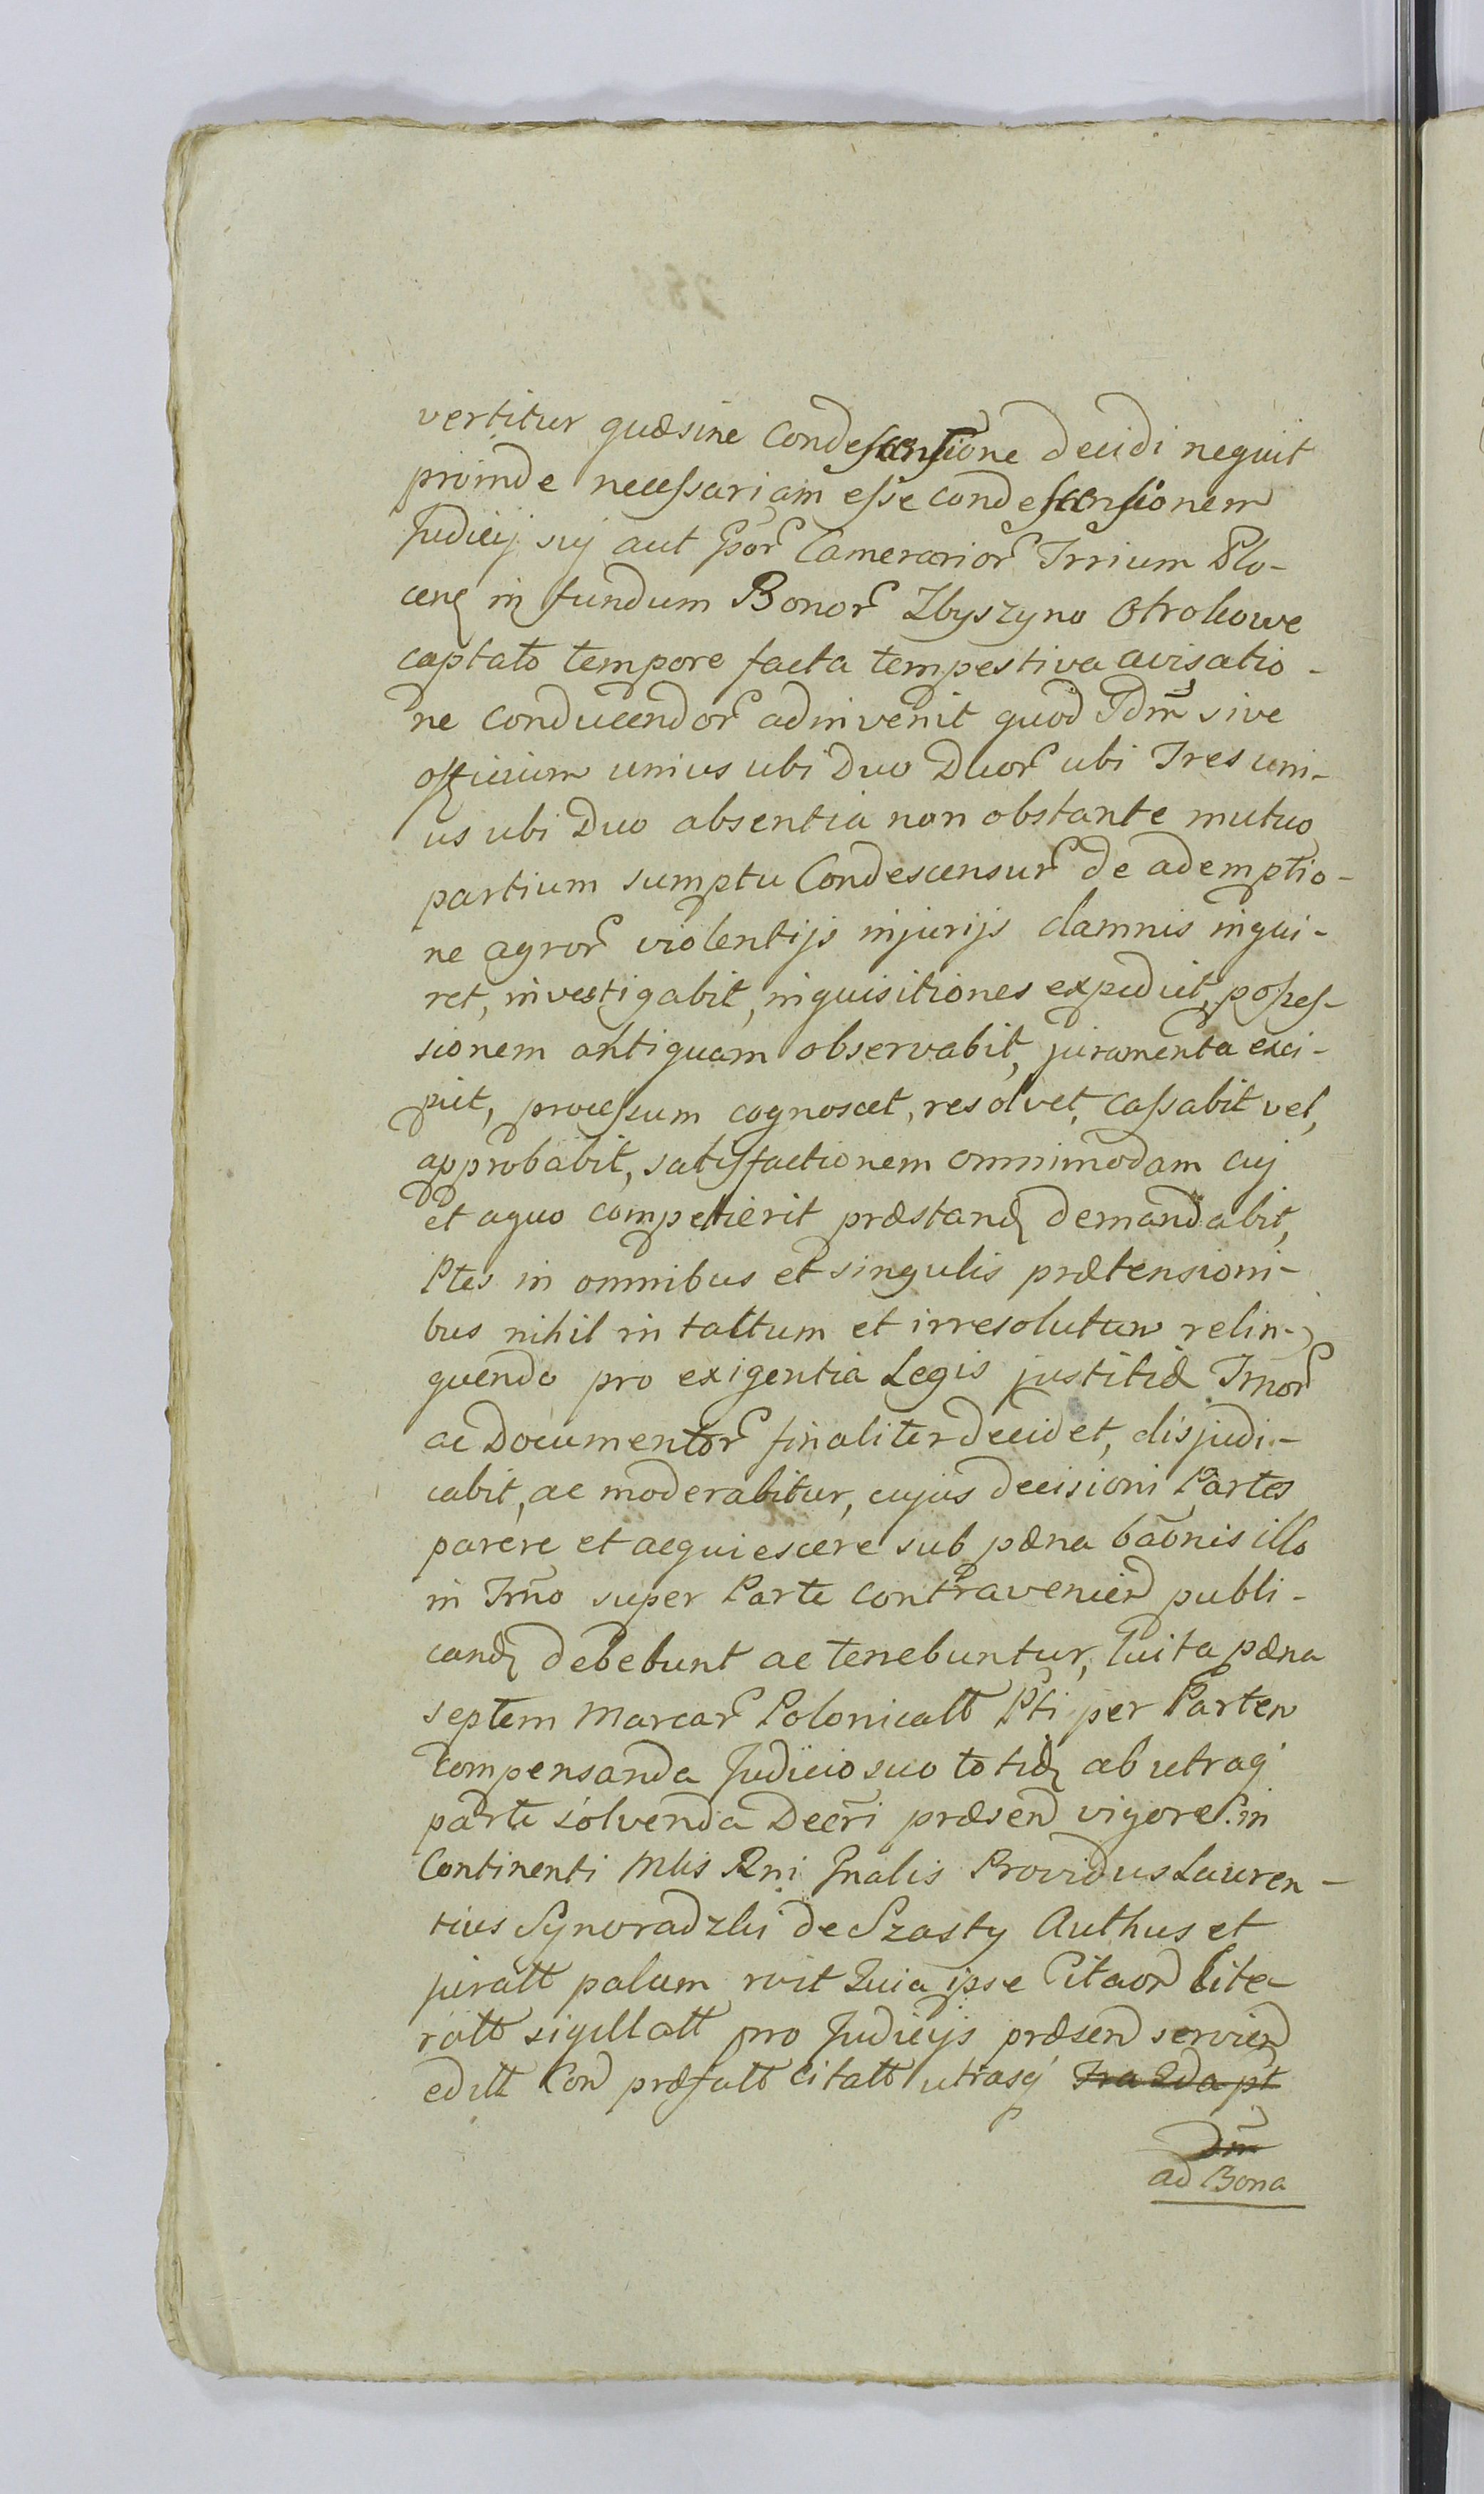 vertitur quæ sine Condescensione decidi nequit
proinde necessariam esse condescensionem
Judicij sui aut Gsor Camerarior Trrium Plo-
cen in fundum Bonor Zbyszyno Otrokowe
captato tempore facta tempestiva avisatio-
ne conducendor adinvenit quod Idm sive
officium unius ubi Duo Duor ubi Tres uni-
us ubi Duo absentia non obstante mutuo
partium sumptu Condescensur de ademptio-
ne agror violentijs injurijs damnis inqui-
ret, investigabit, inquisitiones expediet, posses-
sionem antiquam observabit, juramenta exci-
piet, processum cognoscet, resolvet, cassabit vel,
approbabit, satisfactionem omnimodam cuj
et a quo competierit præstand demandabit,
Ptes in omnibus et singulis prætensioni-
bus nihil intactum et irresolutum relin-
quendo pro exigentia Legis justitiæ Trnor
ac Documentor finaliter decidet, disjudi-
cabit, ac moderabitur, cujus decisioni Partes
parere et acquiescere sub pæna baonis illo
in Trno super Parte contravenien publi-
cand debebunt ac tenebuntur, luita pæna
septem Marcar Polonicatt Pti per Partem
compensanda Judicio suo totid ab utraq
parte solvenda Decri præsen vigore. in
Continenti Mlis Rni Gnalis Providus Lauren-
tius Synoradzki de Szasty Authus et
juratt palam rvit Quia ipse Citaon lite-
ratt sigillatt pro Judicijs præsen servien
editt Con præfatt citatt utrasq Fra 2da pt
Dm
ad Bona